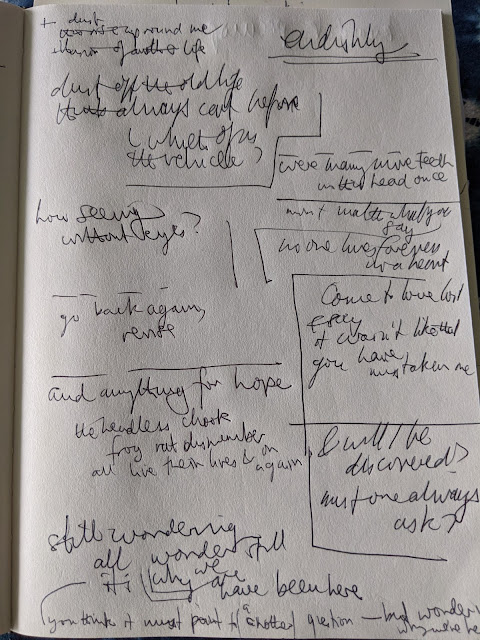 + dust
around me
of another life
dust off the old life
always cart before
(what of us
the vehicle?
were many more teeth
in this head once
how seeing
without eyes?
must match what you
say
no one lives forever
in a heart
go back again,
revise
Come to love lost
it wasn't like that
you have
mistaken me
and anything for hope
the headless chook
frog rat dismember
all live their lives & on
again
& will I be
discovered?
must one always
ask?
still wondering
all wonder still
it is why we are
have been here
you think it must point to another question — but wonder